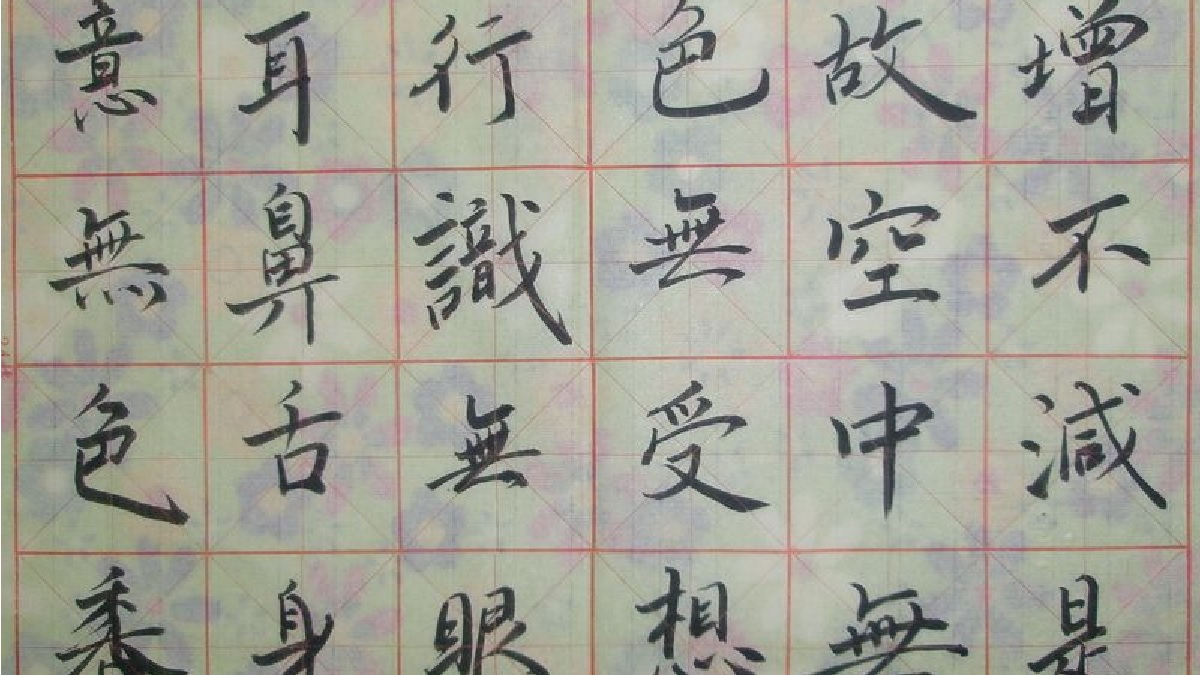 增不減是
故空中無
色無受想
行識無眼
耳鼻舌身
意無色